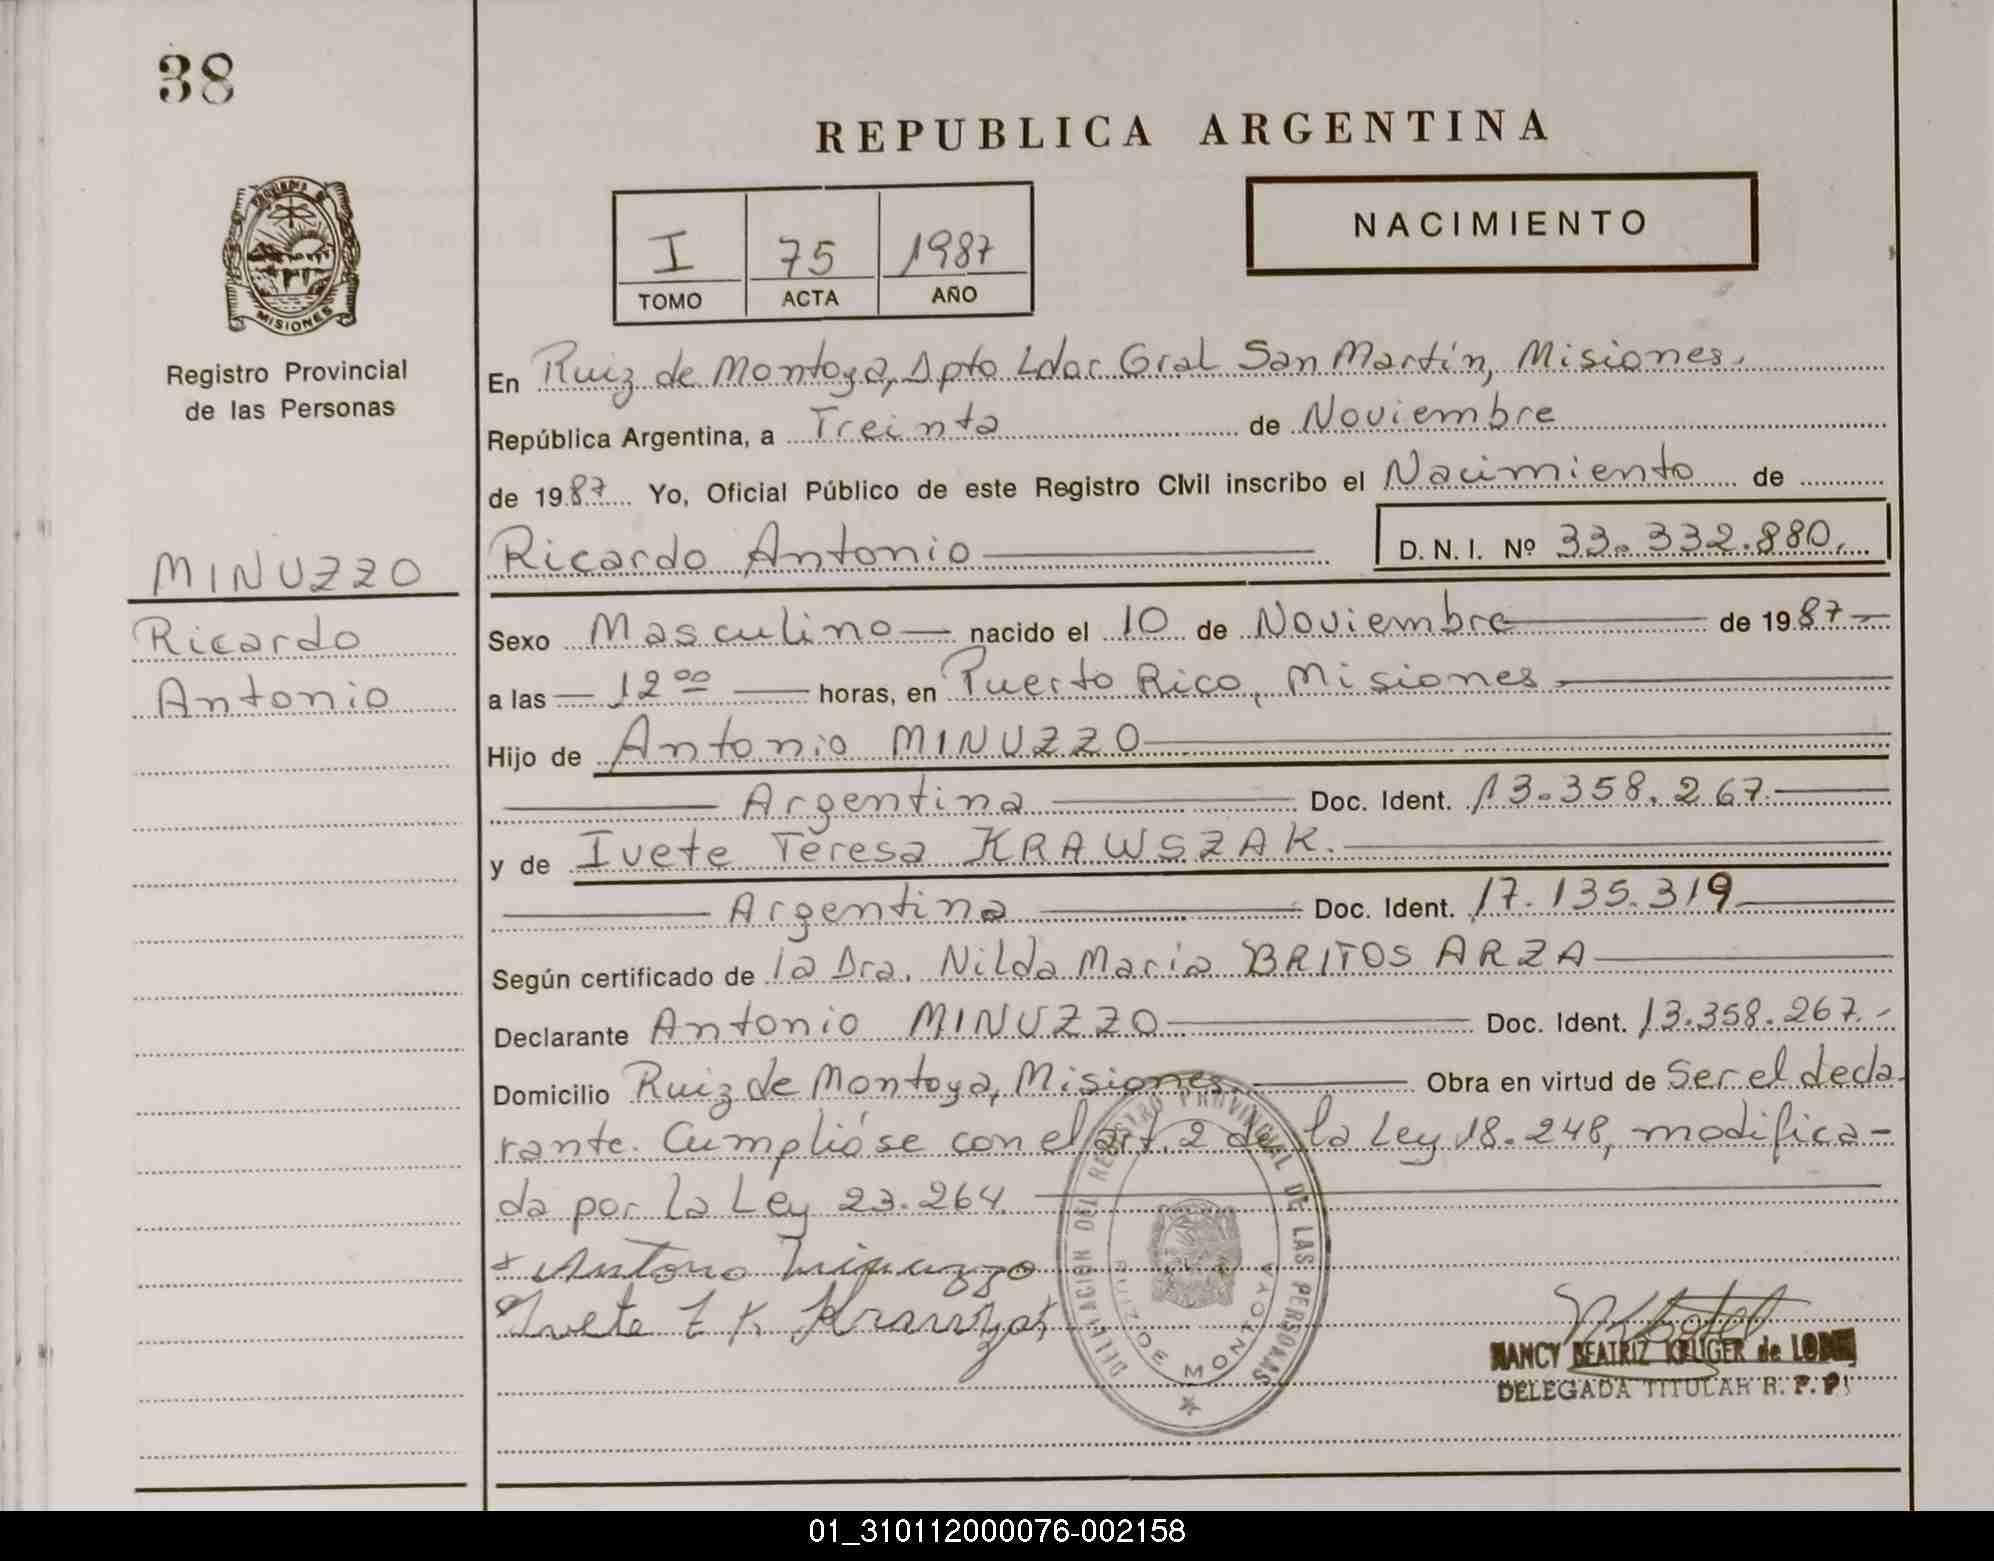 38
REPUBLICA ARGENTINA
NACIMIENTO
I 75 1987
TOMO ACTA AÑO
MISIONES
Registro Provincial
de las Personas
MINUZZO
Ricardo
Antonio
En Ruiz de Montoya, Dpto Ldor Gral San Martín, Misiones.
República Argentina, a Treinta de Noviembre
de 1987 Yo, Oficial Público de este Registro Civil inscribo el Nacimiento de
Ricardo Antonio D.N.I. Nº 33.332.880.
Sexo Masculino nacido el 10 de Noviembre de 1987
a las 12 00 horas, en Puerto Rico, Misiones
Hijo de Antonio MINUZZO
Argentina Doc. Ident. 13.358.267.
y de Ivete Teresa KRAWSZAK.
Argentina Doc. Ident. 17.135.319
Según certificado de la Dra. Nilda María BRITOS ARZA
Declarante Antonio MINUZZO Doc. Ident. 13.358.267.-
Domicilio Ruiz de Montoya, Misiones. Obra en virtud de Ser el decla
rante. Cumplióse con el art. 2 de la Ley 18.248, modifica-
da por la Ley 23.264.
+ Antonio Minuzzo
Ivete T K
DELEGACION DEL REGISTRO PROVINCIAL DE LAS PERSONAS
RUIZ DE MONTOYA
NANCY BEATRIZ KRUGER de
DELEGADA TITULAR R. P. P.
01_310112000076-002158